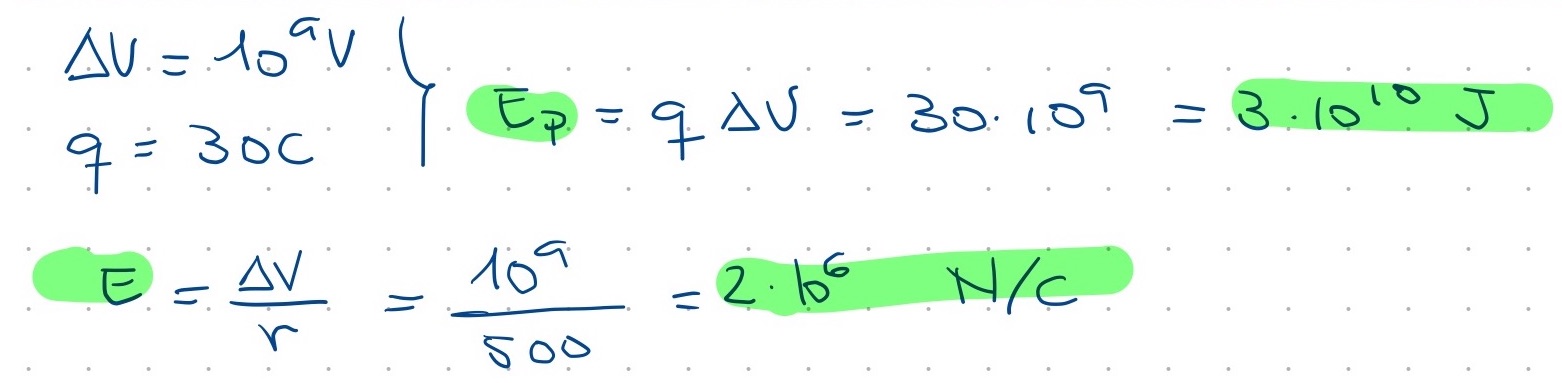 ΔV = 10⁹ V
q = 30C
E_p = q ΔV = 30·10⁹ = 3·10¹⁰ J
E = ΔV/r = 10⁹/500 = 2·10⁶ N/C